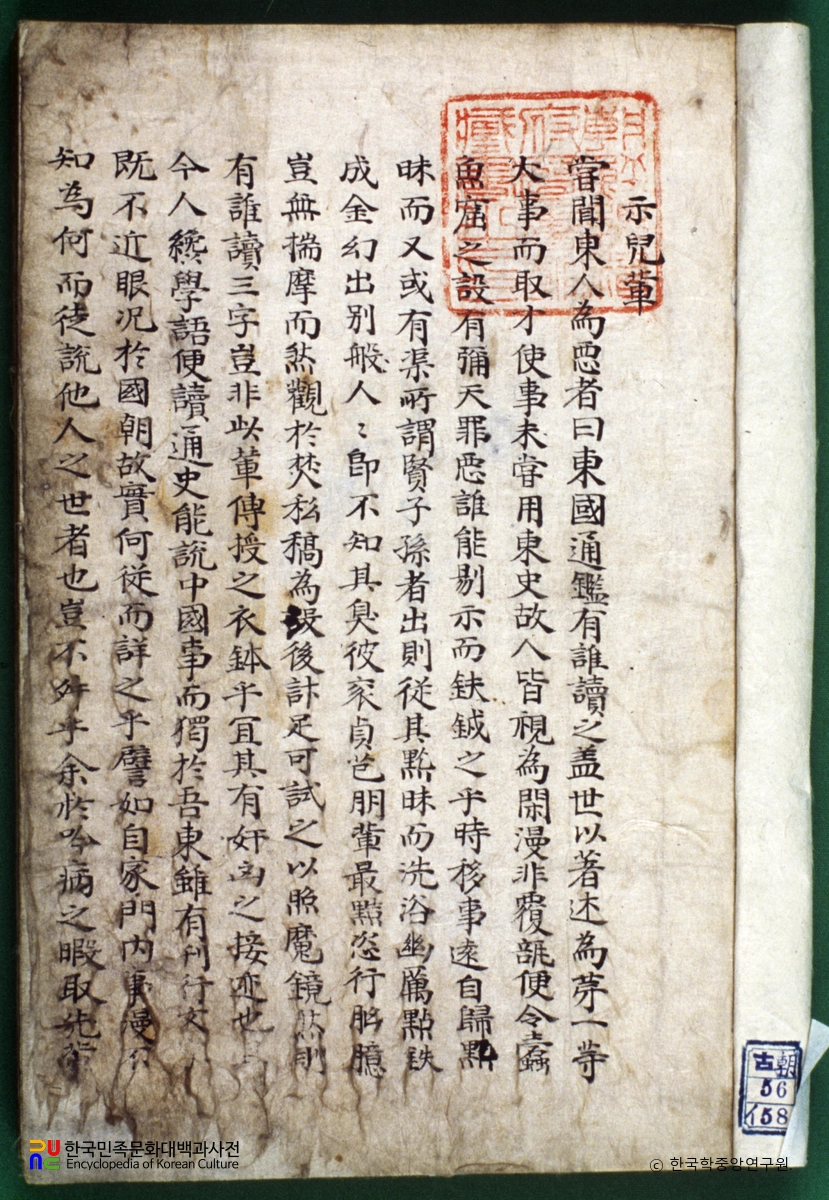 示兒輩
嘗聞東人為悪者曰東國通鑑有誰讀之盖世以著述為第一等
大事而取才使事未嘗用東史故人皆視為閑漫非覆瓿便令蠹
魚窟之設有彌天罪悪誰能剔示而鈇鉞之乎時移事遠自歸點
昧而又或有渠所謂賢子孫者出則従其點昧而洗浴幽厲點鉄
成金幻出别般人〻即不知其臭彼衮貞芑朋輩最點恣行胸臆
豈無揣摩而然觀於焚私稿為後計足可試之以照魔鏡然則
有誰讀三字豈非此輩傳授之衣鉢乎冝其有奸凶之接迹也
今人纔學語便讀通史能説中國事而獨於吾東雖有刊行文
既不近眼况於國朝故實何従而詳之乎譬如自家門内事漫不
知為何而徒説他人之世者也豈不舛乎余於吟病之暇取
古朝
56
イ58
한국민족문화대백과사전
Encyclopedia of Korean Culture
© 한국학중앙연구원